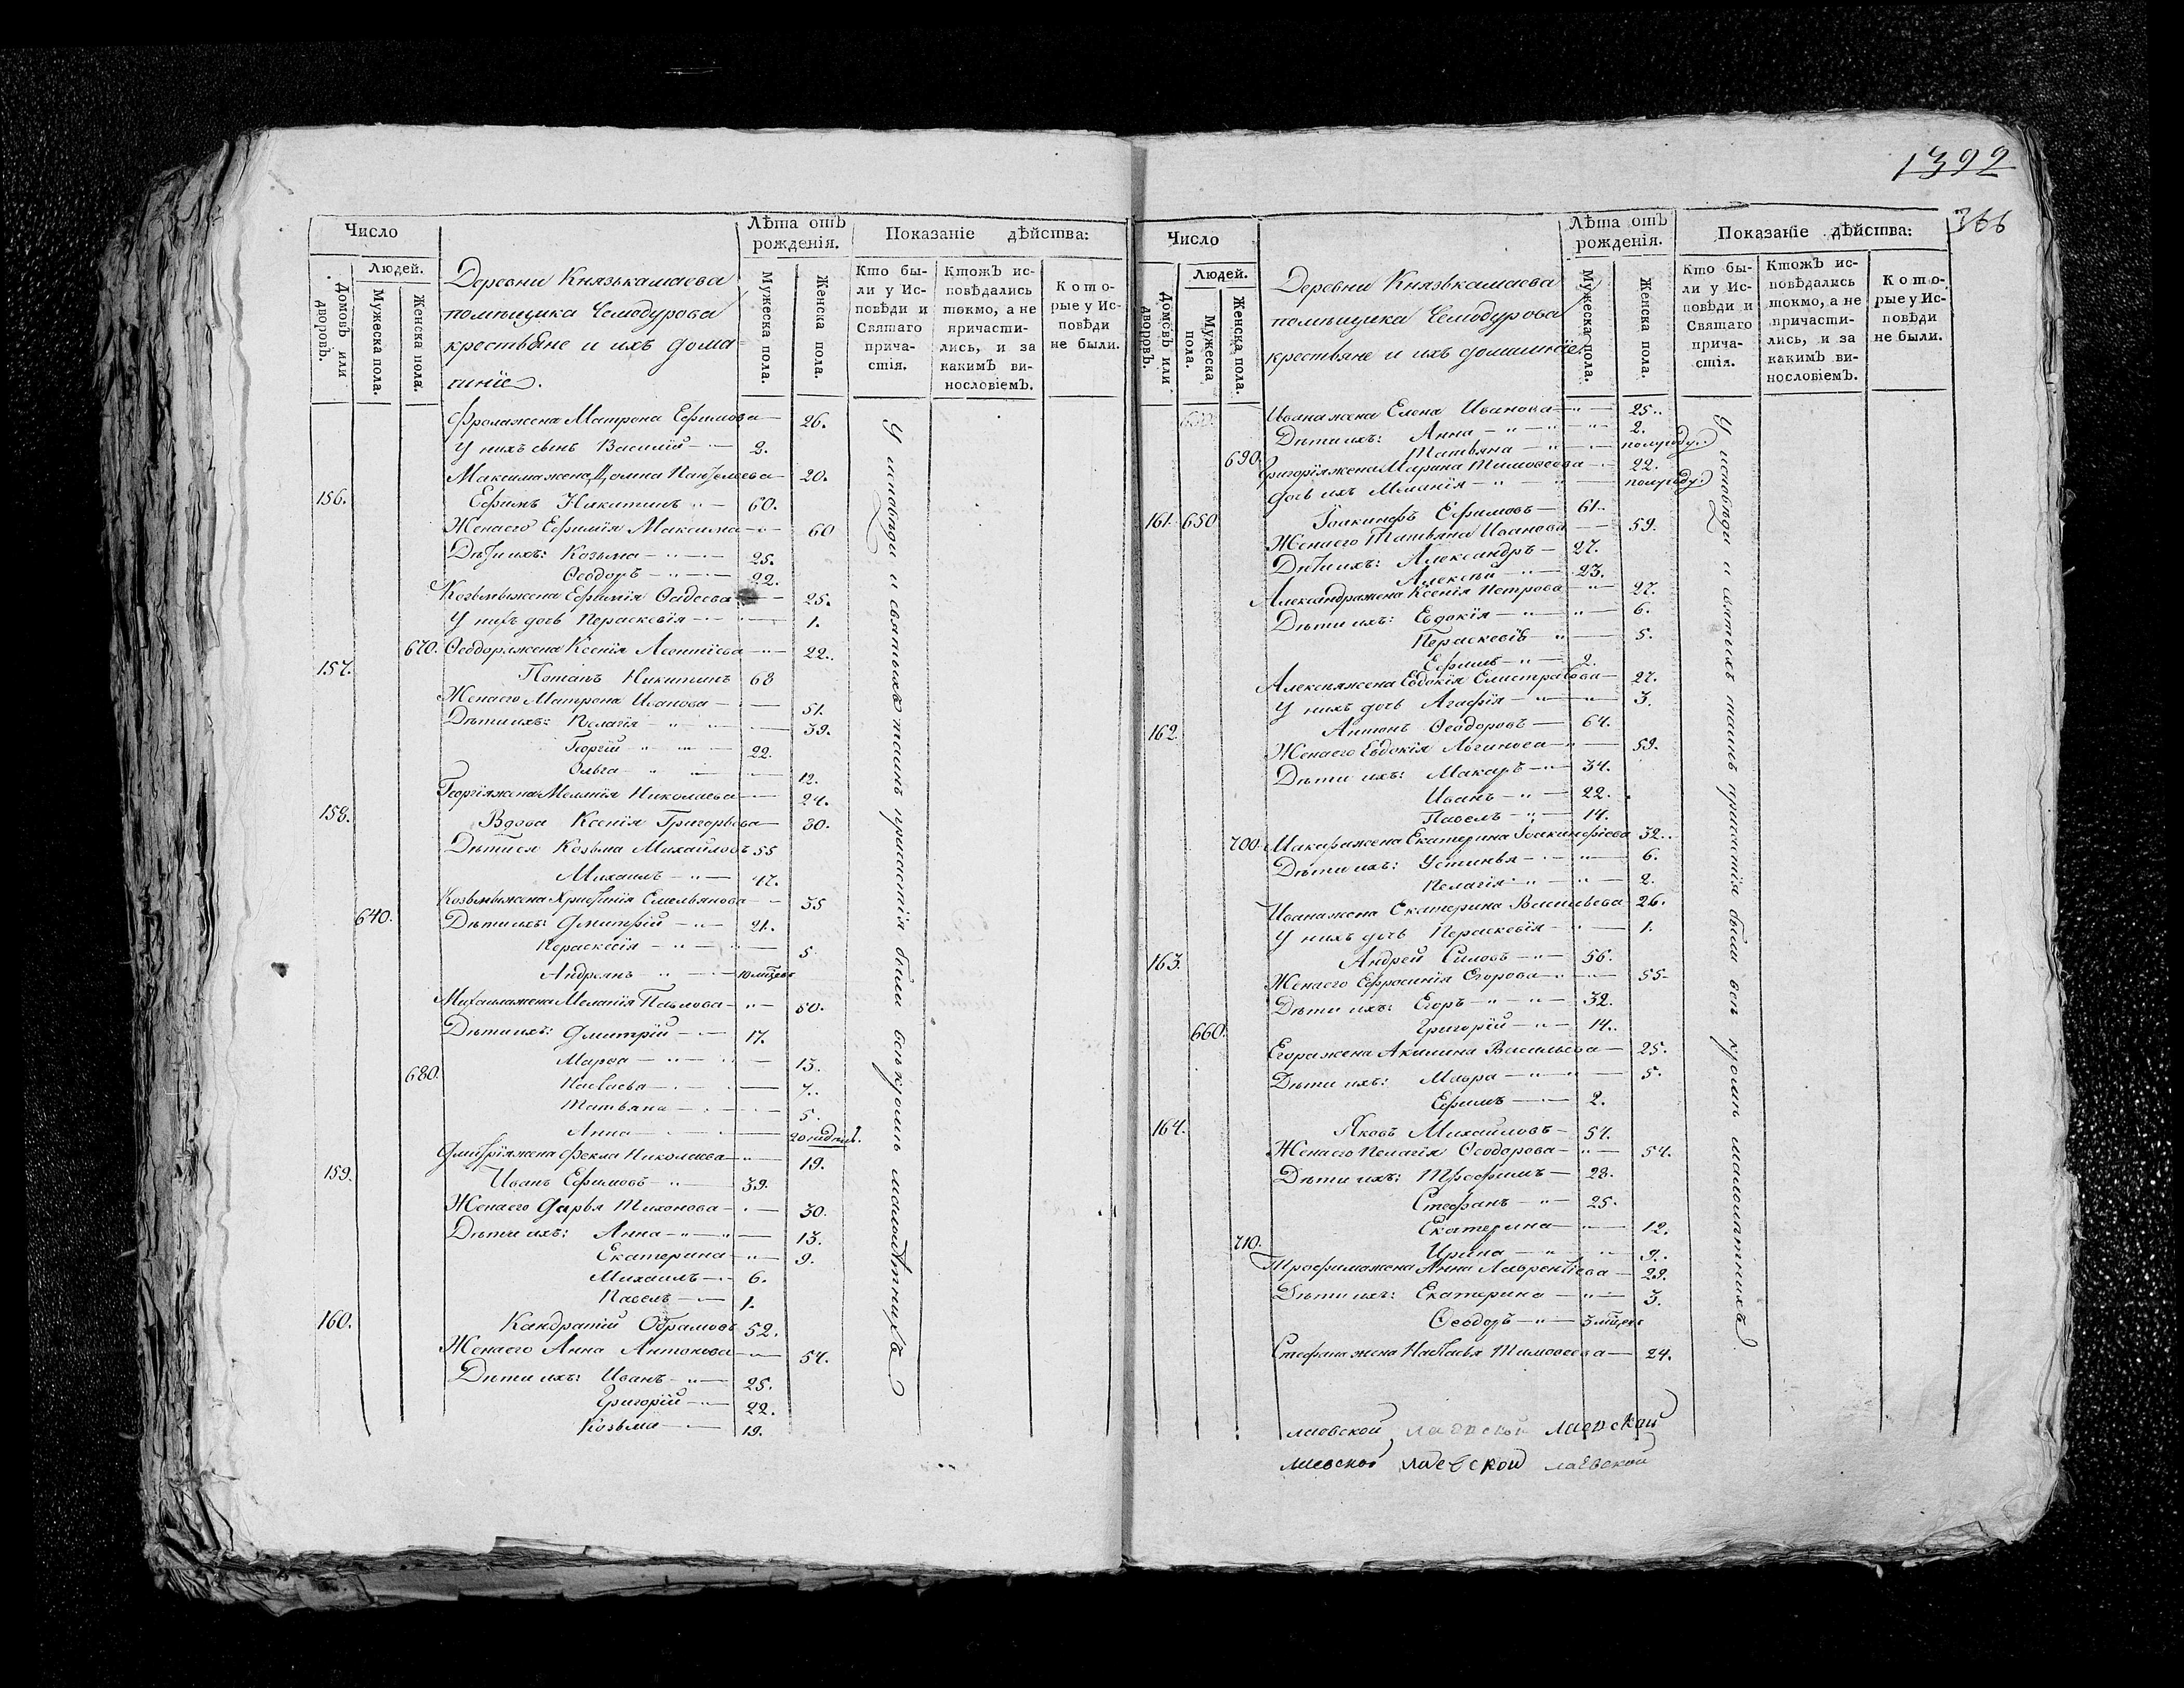 1392
366
Число
Людей.
Домовъ или дворовъ.
Мужеска пола.
Женска пола.
Деревни Князькамаева
помѣщика Чемодурова
крестьяне и ихъ дома
шніе.
Лѣта отъ рожденія.
Мужеска пола.
Женска пола.
Показаніе дѣйства:
Кто бы-
ли у Ис-
повѣди и
Святаго
прича-
стія.
Ктожъ ис-
повѣдались
токмо, а не
причасти-
лись, и за
какимъ ви-
нословіемъ.
Кото-
рые у Ис-
повѣди
не были.
Фролажена Матрона Ефимова 26.
У нихъ сынъ Василій 2.
Максимажена Домна Пантелеева 20.
156. Ефимъ Никитинъ 60.
Женаего Ефимія Максима 60
Дѣти ихъ: Козьма 25.
Ѳеодоръ 22.
Козьмыжена Ефимія Фадеева 25.
У нихъ дочь Пераскевія 1.
670. Ѳеодоражена Ксенія Леонтіева 22.
157. Потапъ Никитинъ 68
Женаего Матрона Иванова 51.
Дѣти ихъ: Пелагія 39.
Георгій 22.
Ольга 12.
Георгіяжена Меланія Николаева 24.
158. Вдова Ксенія Григорьева 30.
Дѣтиея Козьма Михайловъ 55
Михаилъ 47.
Козьмыжена Христинія Емельянова 35
640. Дѣтиихъ: Дмитрій 21.
Пераскевія 5.
Андреянъ 10 мѣсяц
Михаилажена Меланія Павлова 50.
Дѣтиихъ: Дмитрій 17.
Марѳа 13.
680. Настасья 7.
Татьяна 5.
Анна 20 недѣль.
Дмитріяжена Фекла Николаева 19.
159. Иванъ Ефимовъ 39.
Женаего Дарья Тихонова 30.
Дѣти ихъ: Анна 13.
Екатерина 9.
Михаилъ 6.
Павелъ 1.
160. Кандратій Обрамовъ 52.
Женаего Анна Антонова 54.
Дѣти ихъ: Иванъ 25.
Григорій 22.
Козьма 19.
У исповѣди и святыхъ таинъ причастія были всѣ кромѣ малолѣтнихъ
Число
Людей.
Домовъ или дворовъ.
Мужеска пола.
Женска пола.
Деревни Князькамаева
помѣщика Чемодурова
крестьяне и ихъ домашніе.
Лѣта отъ рожденія.
Мужеска пола.
Женска пола.
Показаніе дѣйства:
Кто бы-
ли у Ис-
повѣди и
Святаго
прича-
стія.
Ктожъ ис-
повѣдались
токмо, а не
причасти-
лись, и за
какимъ ви-
нословіемъ.
Кото-
рые у Ис-
повѣди
не были.
Иванажена Елена Иванова 25.
Дѣти ихъ: Анна 2.
Татьяна полугоду.
690. Григоріяжена Марина Тимоѳеева 22.
дочь ихъ Меланія полугоду.
161. 650 Іоакинфъ Ефимовъ 61.
Женаего Татьяна Иванова 59.
Дѣти ихъ: Александръ 27.
Алексѣй 23.
Александражена Ксенія Петрова 27.
Дѣти ихъ: Евдокія 6.
Пераскевія 5.
Ефимъ 2.
Алексѣяжена Евдокія Елистратова 27.
У нихъ дочь Агафія 3.
162. Антонъ Ѳеодоровъ 64.
Женаего Евдокія Логинова 59.
Дѣти ихъ: Макаръ 34.
Иванъ 22.
Павелъ 14.
700. Макарижена Екатерина Іоакинфіева 32.
Дѣти ихъ: Устинья 6.
Пелагія 2.
Иванажена Екатерина Васильева 26.
У нихъ дочь Пераскевія 1.
163. Андрей Силовъ 56.
Женаего Ефросинія Егорова 55
Дѣти ихъ: Егоръ 32.
660. Григорій 14.
Егоражена Акилина Васильева 25.
Дѣти ихъ: Мавра 5.
Ефимъ 2.
164. Яковъ Михайловъ 54.
Женаего Пелагія Ѳеодорова 54.
Дѣти ихъ: Трофимъ 28.
Стефанъ 25.
Екатерина 12.
710. Ирина 9.
Трофимажена Анна Лаврентіева 29.
Дѣти ихъ: Екатерина 3.
Ѳеодоръ 3 мѣсяц
Стефана жена Настасья Тимоѳеева 24.
У исповѣди и святыхъ таинъ причастія были всѣ кромѣ малолѣтнихъ
лаевской лаевской лаевской
лаевской лаевской лаевской